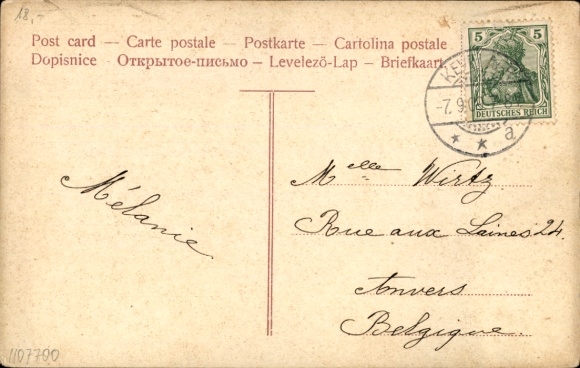 18,-
Post card — Carte postale — Postkarte — Cartolina postale
Dopisnice - Открытое-письмо – Levelezõ-Lap – Briefkaart
5 5
DEUTSCHES REICH
-7.9.
* * a
Mélanie
Melle Wirtz
Rue aux Laines 24.
Anvers
Belgique.
1107700